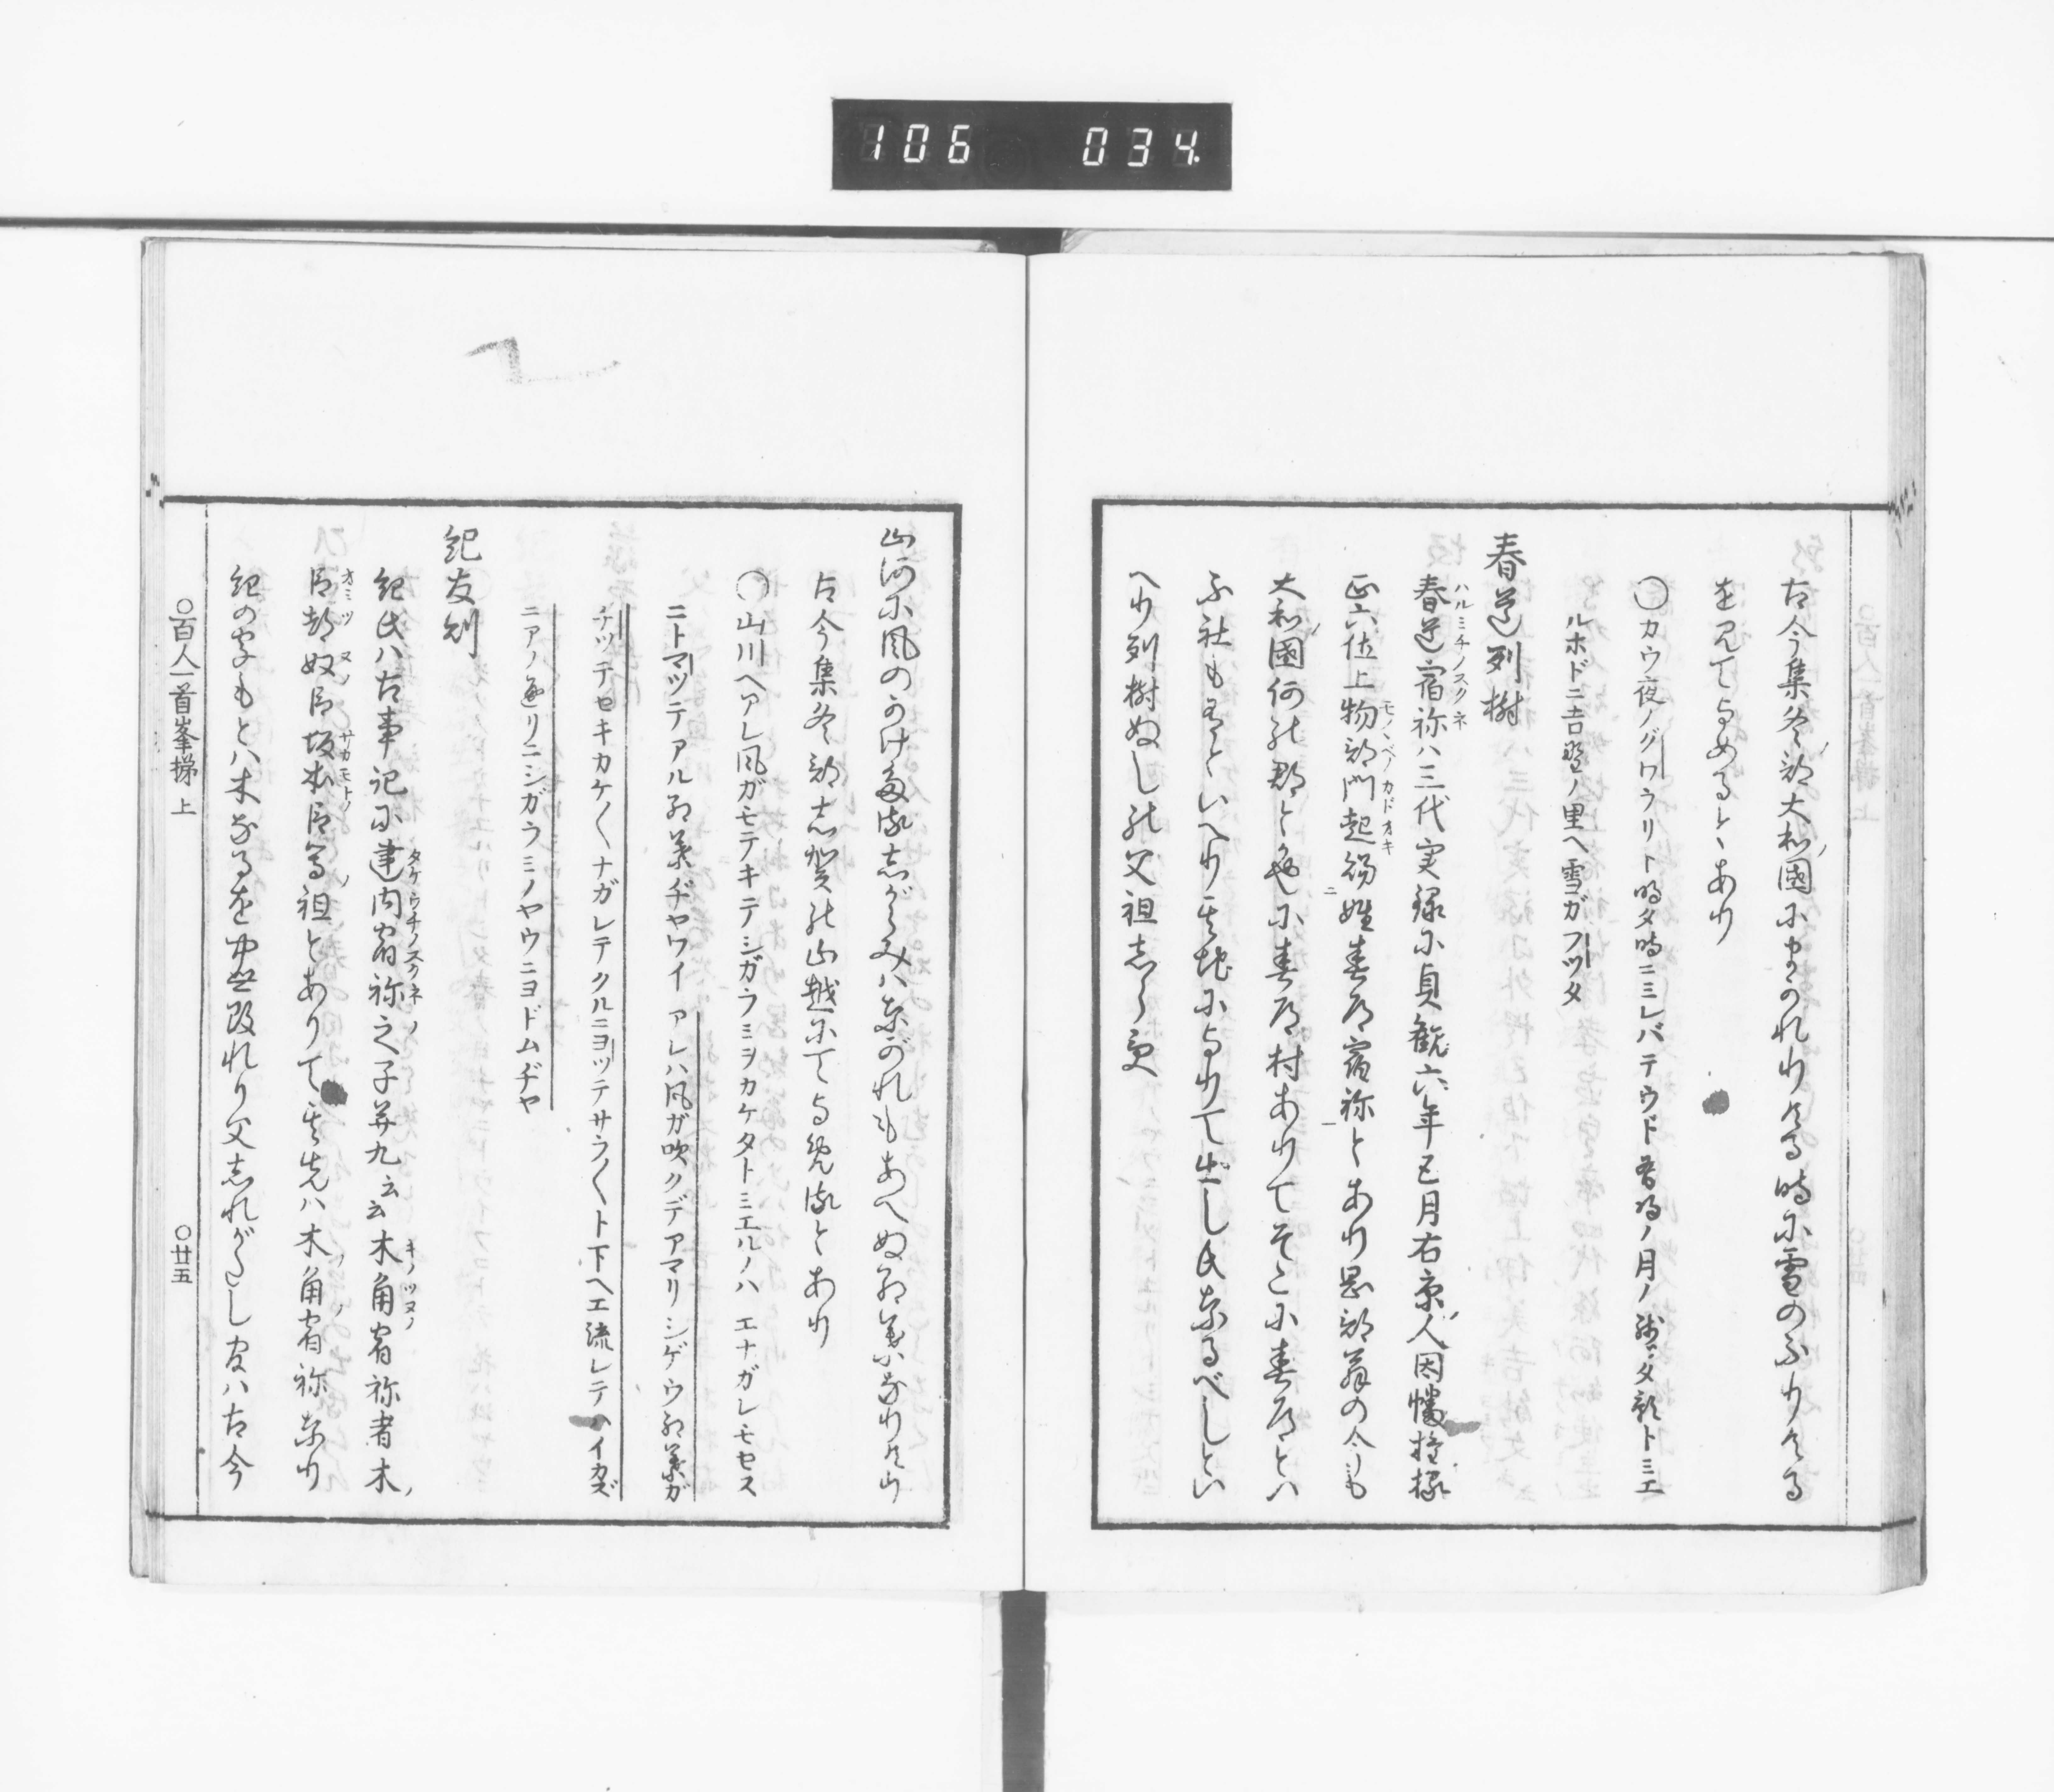 106 034
古今集冬ノ部大和ノ國にまかれりける時に雪のふりける
を見てよめるとあり
○カウ夜ノグワラリト明タ時ニミレバテウド有明ノ月ノ残ツタ影トミエ
ルホドニ吉野ノ里ヘ雪ガフツタ
春道列樹
春道宿祢ハ三代実録に貞観六年五月右京ノ人因幡権掾
ハルミチノスクネ
正六位上物部門起賜姓春道宿祢とあり
モノヽベノカドオキ
大和ノ國何の郡とかやに春道村ありてそこに春道とい
ふ社も有といへり其地によりて出し氏なるべしとい
へり列樹ぬしの父祖志らず
山河に風のかけたる志がらみハながれもあへぬ紅葉なりけり
古今集冬部志賀の山越にてよめるとあり
○山川ヘアレ風ガモテキテシガラミヲカケタトミエルノハ エナガレモセス
ニトマツテアル紅葉ヂヤワイ アレハ風ガ吹クデアマリシゲウ紅葉ガ
チツテセキカケ〱ナガレテクルニヨツテサラ〱ト下ヘエ流レテハイカズ
ニアノ通リニシガラミノヤウニヨドムヂヤ
紀友則
紀氏ハ古事記に建内宿祢之子并九云云木ノ角宿祢者木ノ
タケウチノスクネ キノツヌノ
臣都奴臣坂本臣等ノ祖とありて其先ハ木ノ角ノ宿祢なり
オミツヌノ サカモトノ
紀の字もとハ木なるを中世改れり父志れがたし友ハ古今
○百人一首峯梯 上 ○廿五